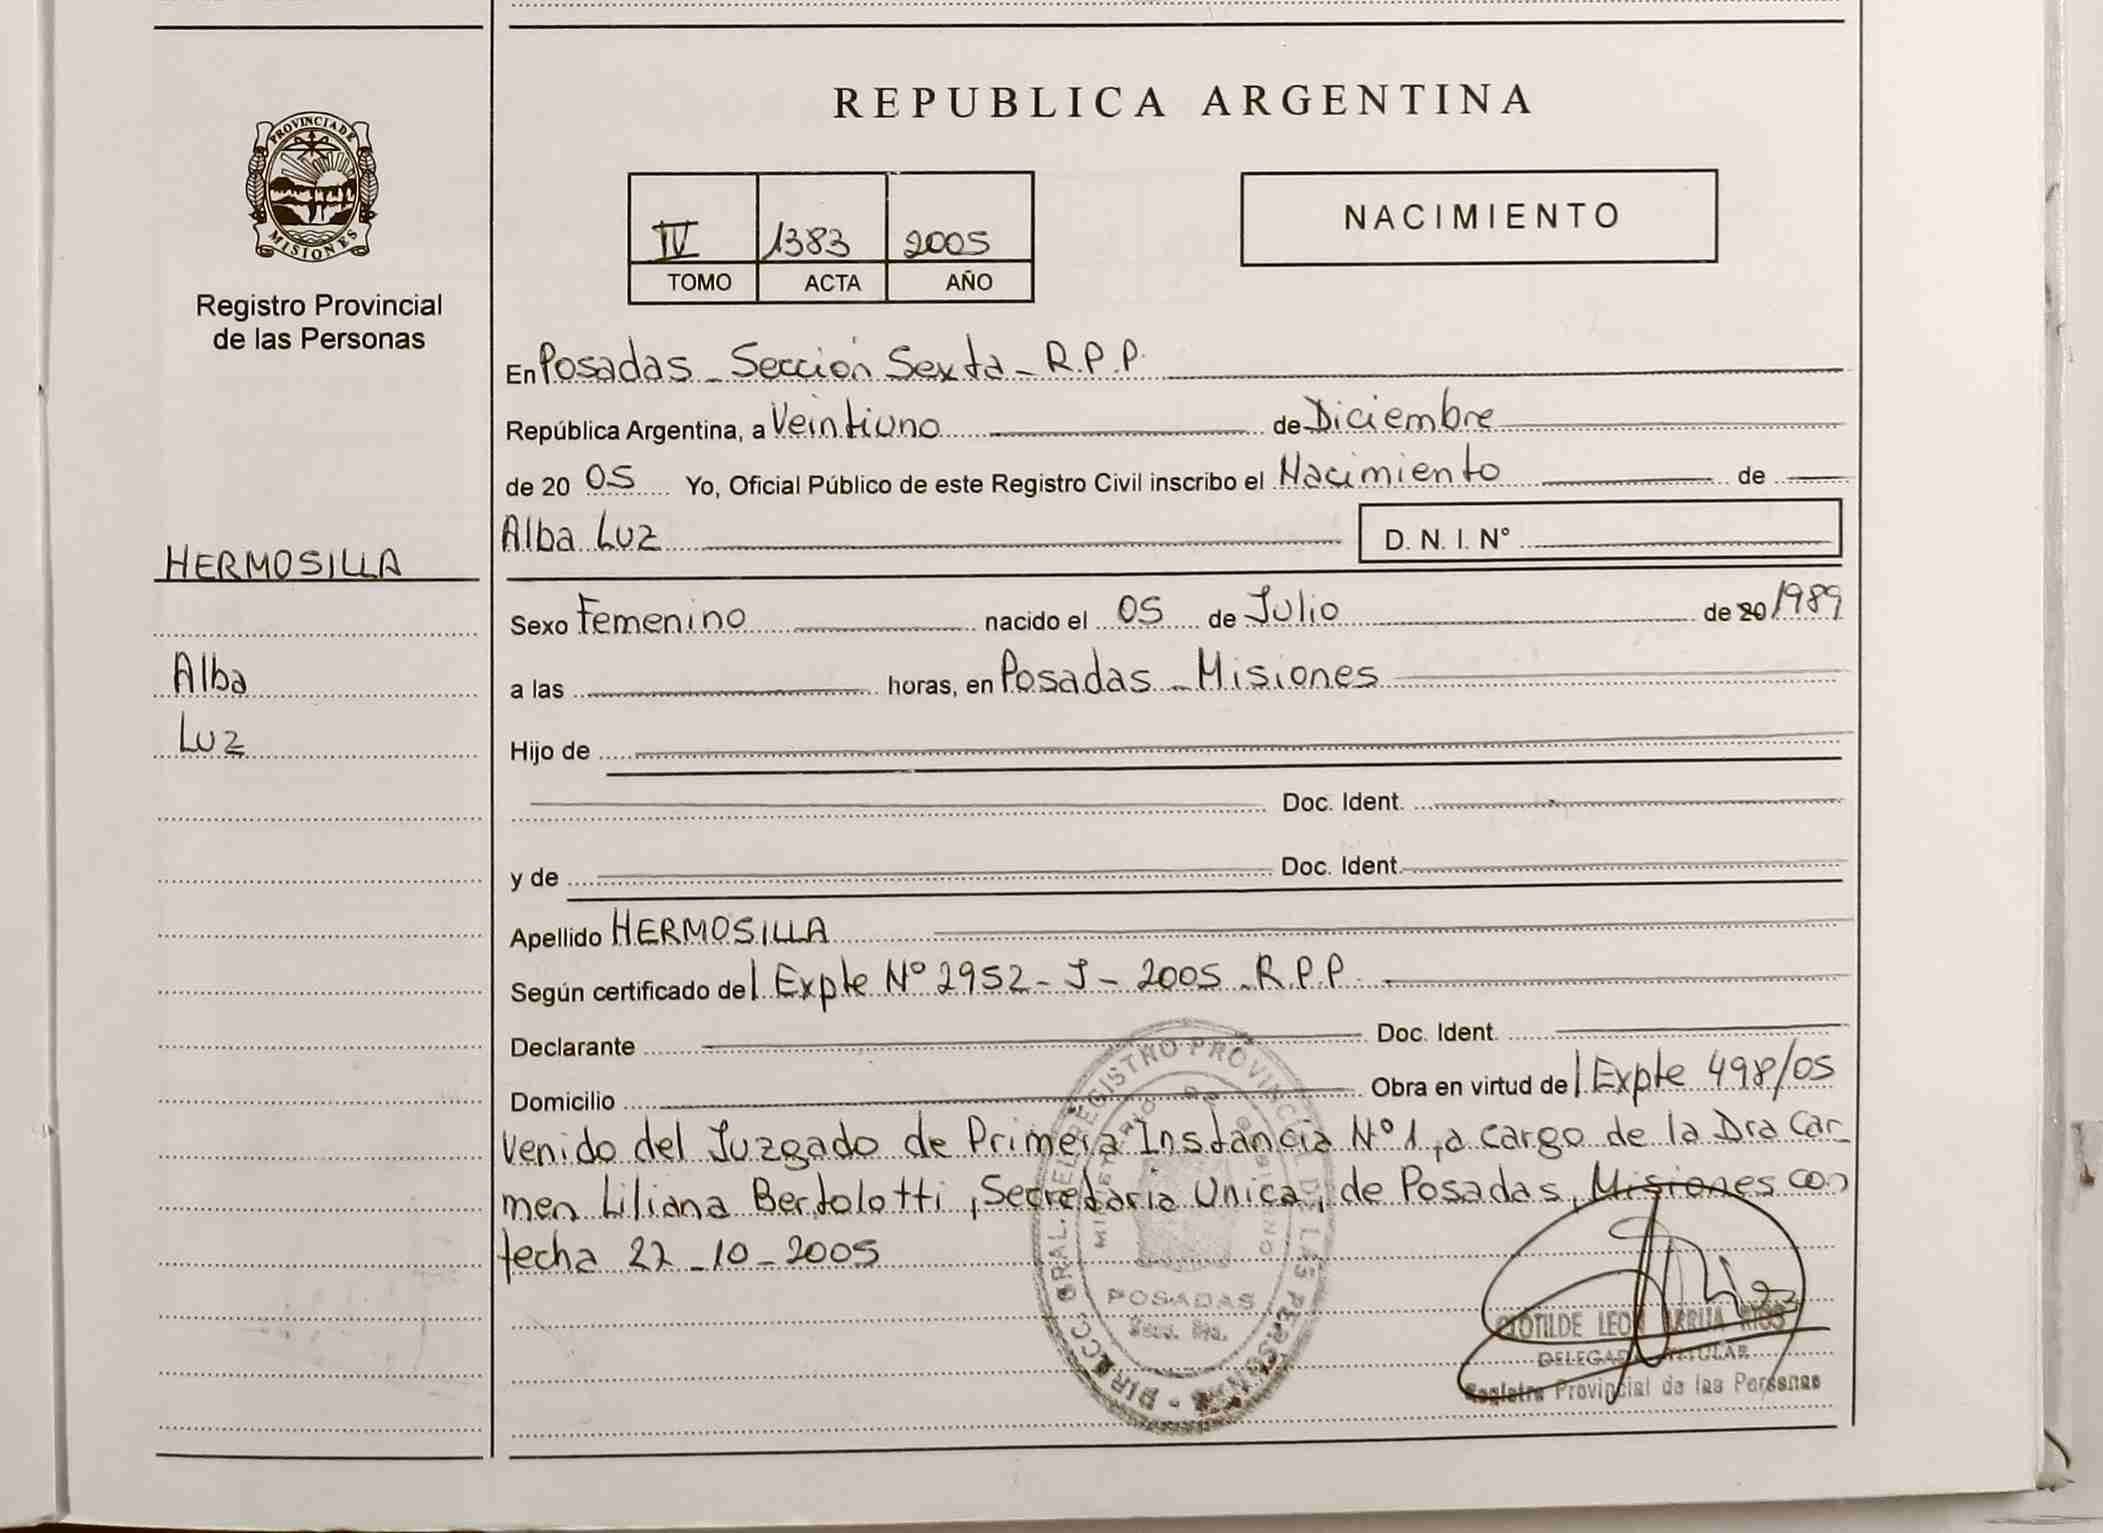 PROVINCIA DE
MISIONES
Registro Provincial
de las Personas
HERMOSILLA
Alba
Luz
REPUBLICA ARGENTINA
IV 1383 2005
TOMO ACTA AÑO
NACIMIENTO
En Posadas - Sección Sexta - R.P.P.
República Argentina, a Veintiuno de Diciembre
de 20 05 Yo, Oficial Público de este Registro Civil inscribo el Nacimiento de
Alba Luz D. N. I. Nº
Sexo Femenino nacido el 05 de Julio de 20 1989
a las horas, en Posadas - Misiones
Hijo de
Doc. Ident.
y de Doc. Ident.
Apellido HERMOSILLA
Según certificado del Expte Nº 2952 - J - 2005 - R.P.P.
Declarante Doc. Ident.
Domicilio Obra en virtud del Expte 498/05
venido del Juzgado de Primera Instancia Nº 1, a cargo de la Dra Car-
men Liliana Bertolotti, Secretaría Unica, de Posadas, Misiones con
fecha 27 - 10 - 2005
DIRECC. GRAL. EL REGISTRO PROVINCIAL DE LAS PERSONAS
MINISTERIO DE GOBIERNO
POSADAS
CLOTILDE LEON ARRUA RIOS
DELEGADA TITULAR
Registro Provincial de las Personas